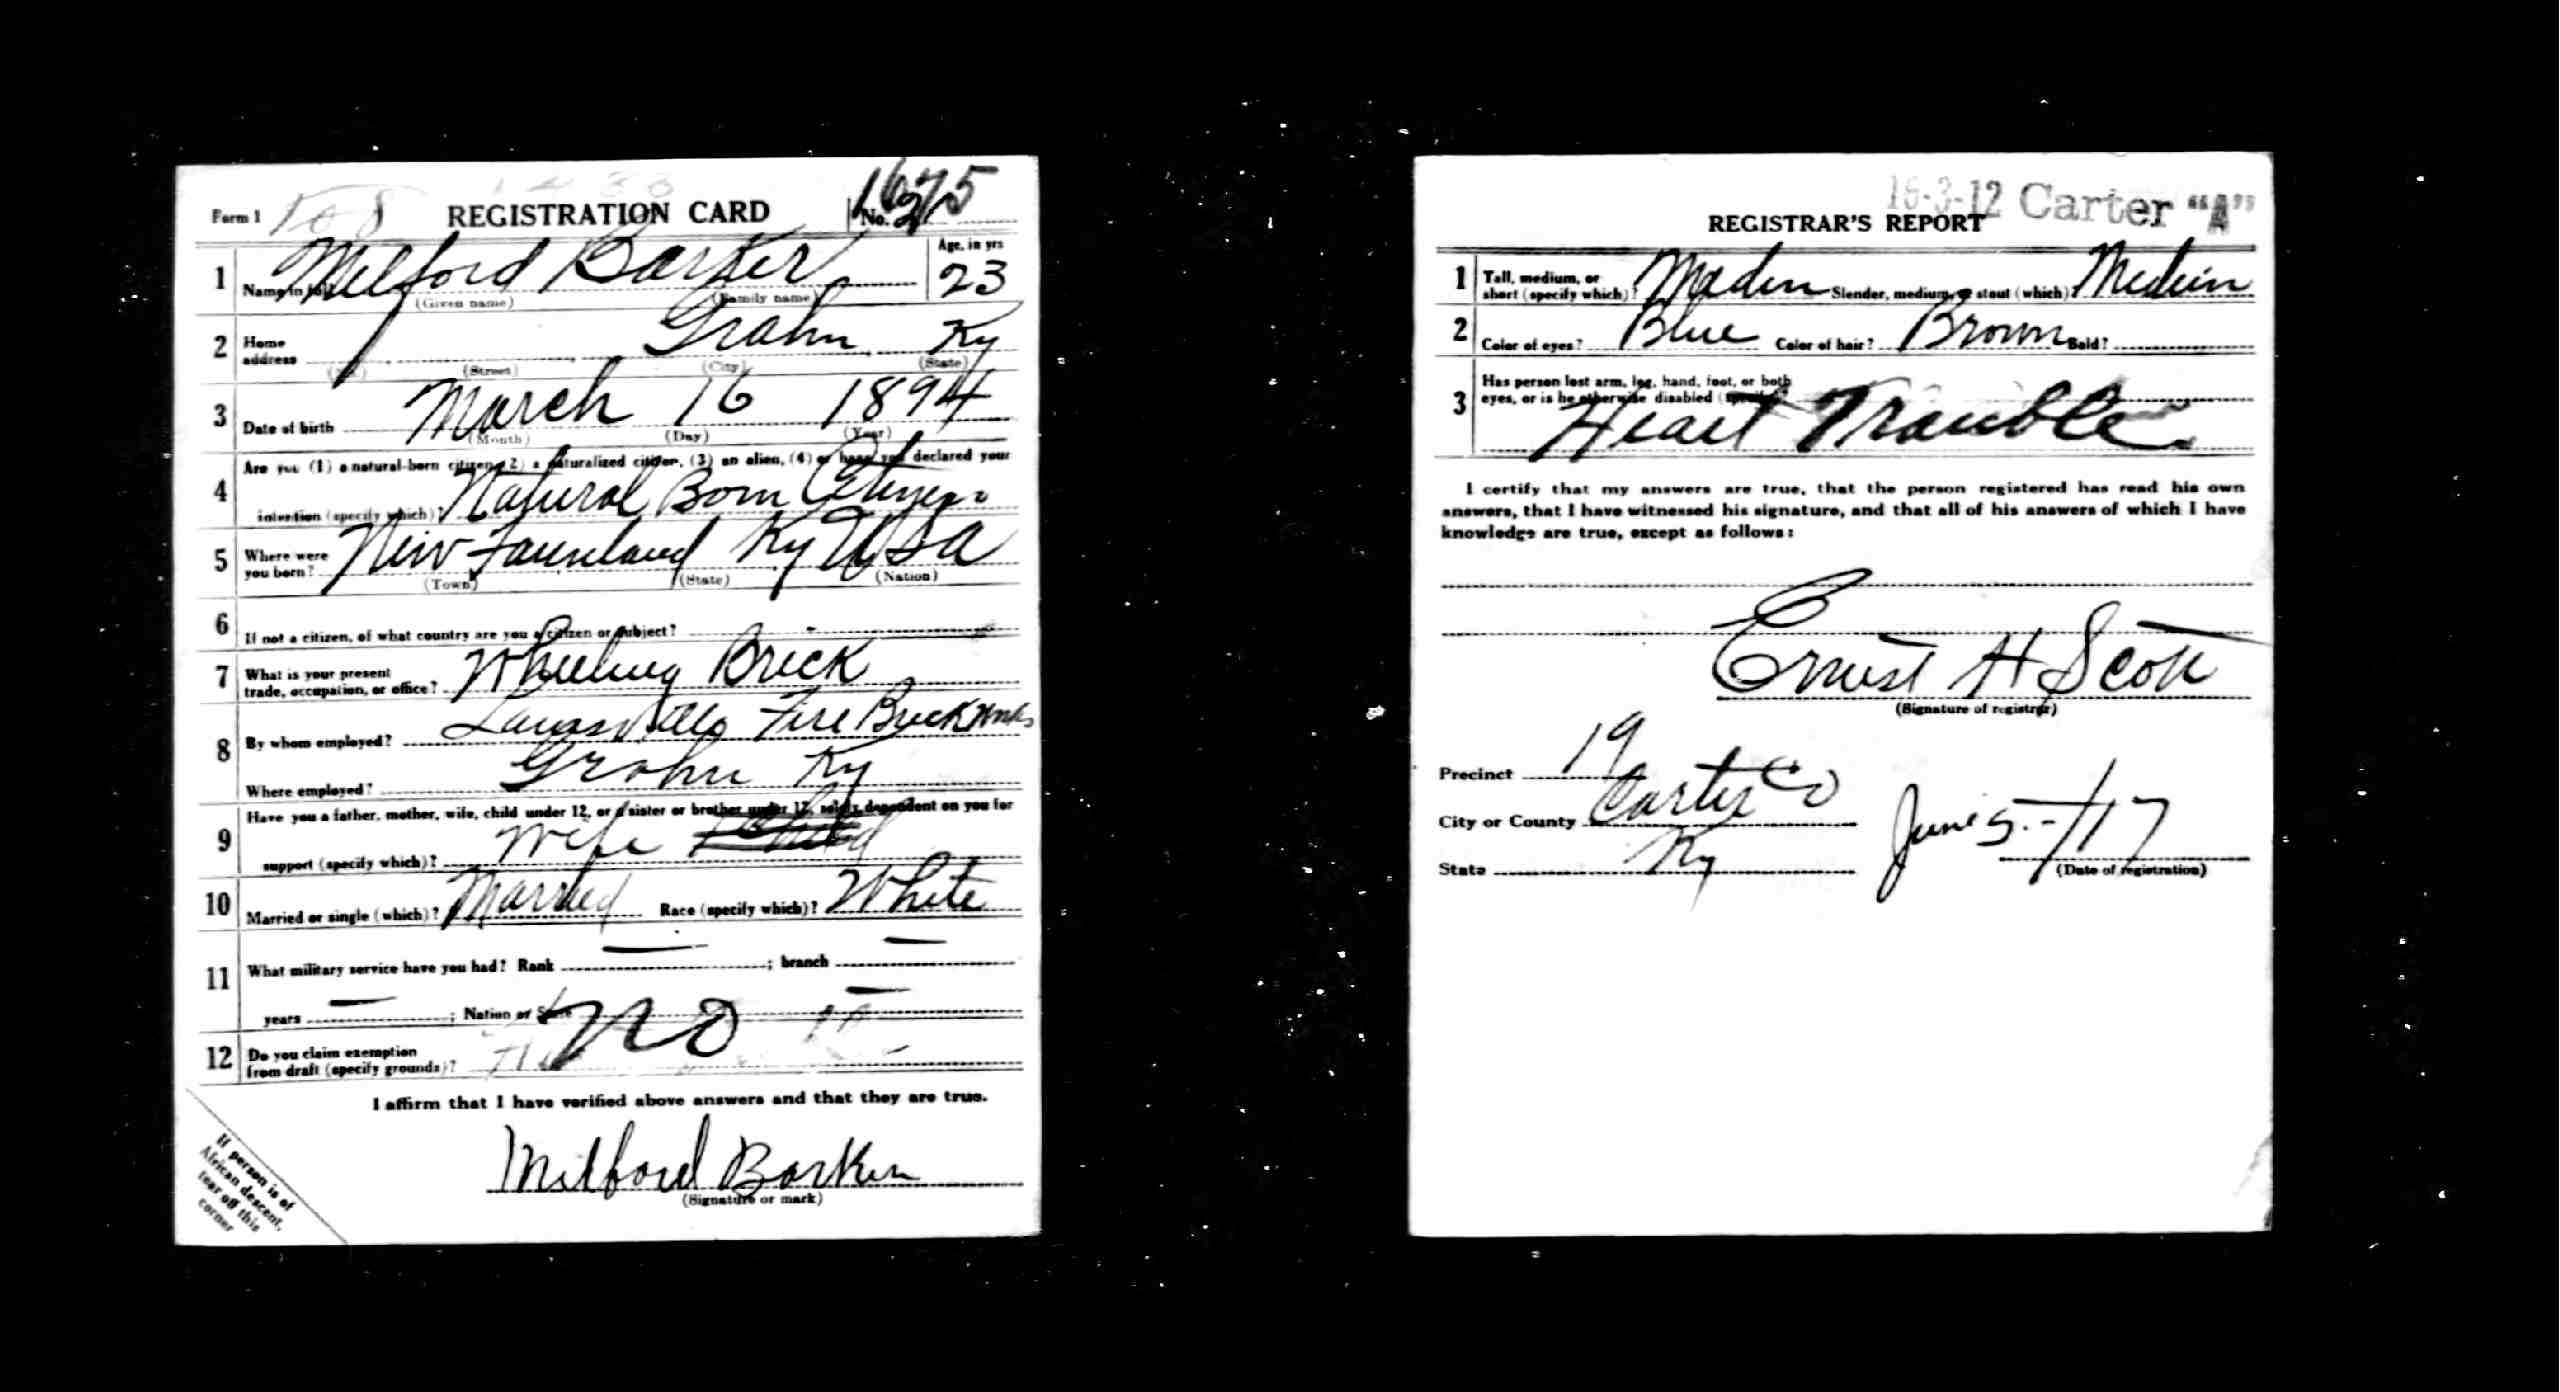 Form 1
REGISTRATION CARD
No. 27
1675
1 Name in full Milford Barker
(Given name) (Family name)
Age, in yrs
23
2 Home address Grahn Ky
(No.) (Street) (City) (State)
3 Date of birth March 16 1894
(Month) (Day) (Year)
4 Are you (1) a natural-born citizen, (2) a naturalized citizen, (3) an alien, (4) or have you declared your
intention (specify which)? Natural Born Citizen
5 Where were you born? New Foundland Ky USA
(Town) (State) (Nation)
6 If not a citizen, of what country are you a citizen or subject?
7 What is your present trade, occupation, or office? Wheeling Brick
8 By whom employed? Louisville Fire Brick Works
Where employed? Grahn Ky
9 Have you a father, mother, wife, child under 12, or a sister or brother under 12, solely dependent on you for
support (specify which)? Wife
10 Married or single (which)? Married Race (specify which)? White
11 What military service have you had? Rank — ; branch —
years — ; Nation or State —
12 Do you claim exemption from draft (specify grounds)? No
I affirm that I have verified above answers and that they are true.
Milford Barker
(Signature or mark)
If person is of
African descent,
tear off this
corner
16-3-12 Carter "A"
REGISTRAR'S REPORT
1 Tall, medium, or short (specify which)? Medium Slender, medium, or stout (which)? Medium
2 Color of eyes? Blue Color of hair? Brown Bald?
3 Has person lost arm, leg, hand, foot, or both
eyes, or is he otherwise disabled (specify)?
Heart Trouble
I certify that my answers are true, that the person registered has read his own
answers, that I have witnessed his signature, and that all of his answers of which I have
knowledge are true, except as follows:
Ernest H Scott
(Signature of registrar)
Precinct 19
City or County Carter Co
State Ky
June 5-/17
(Date of registration)